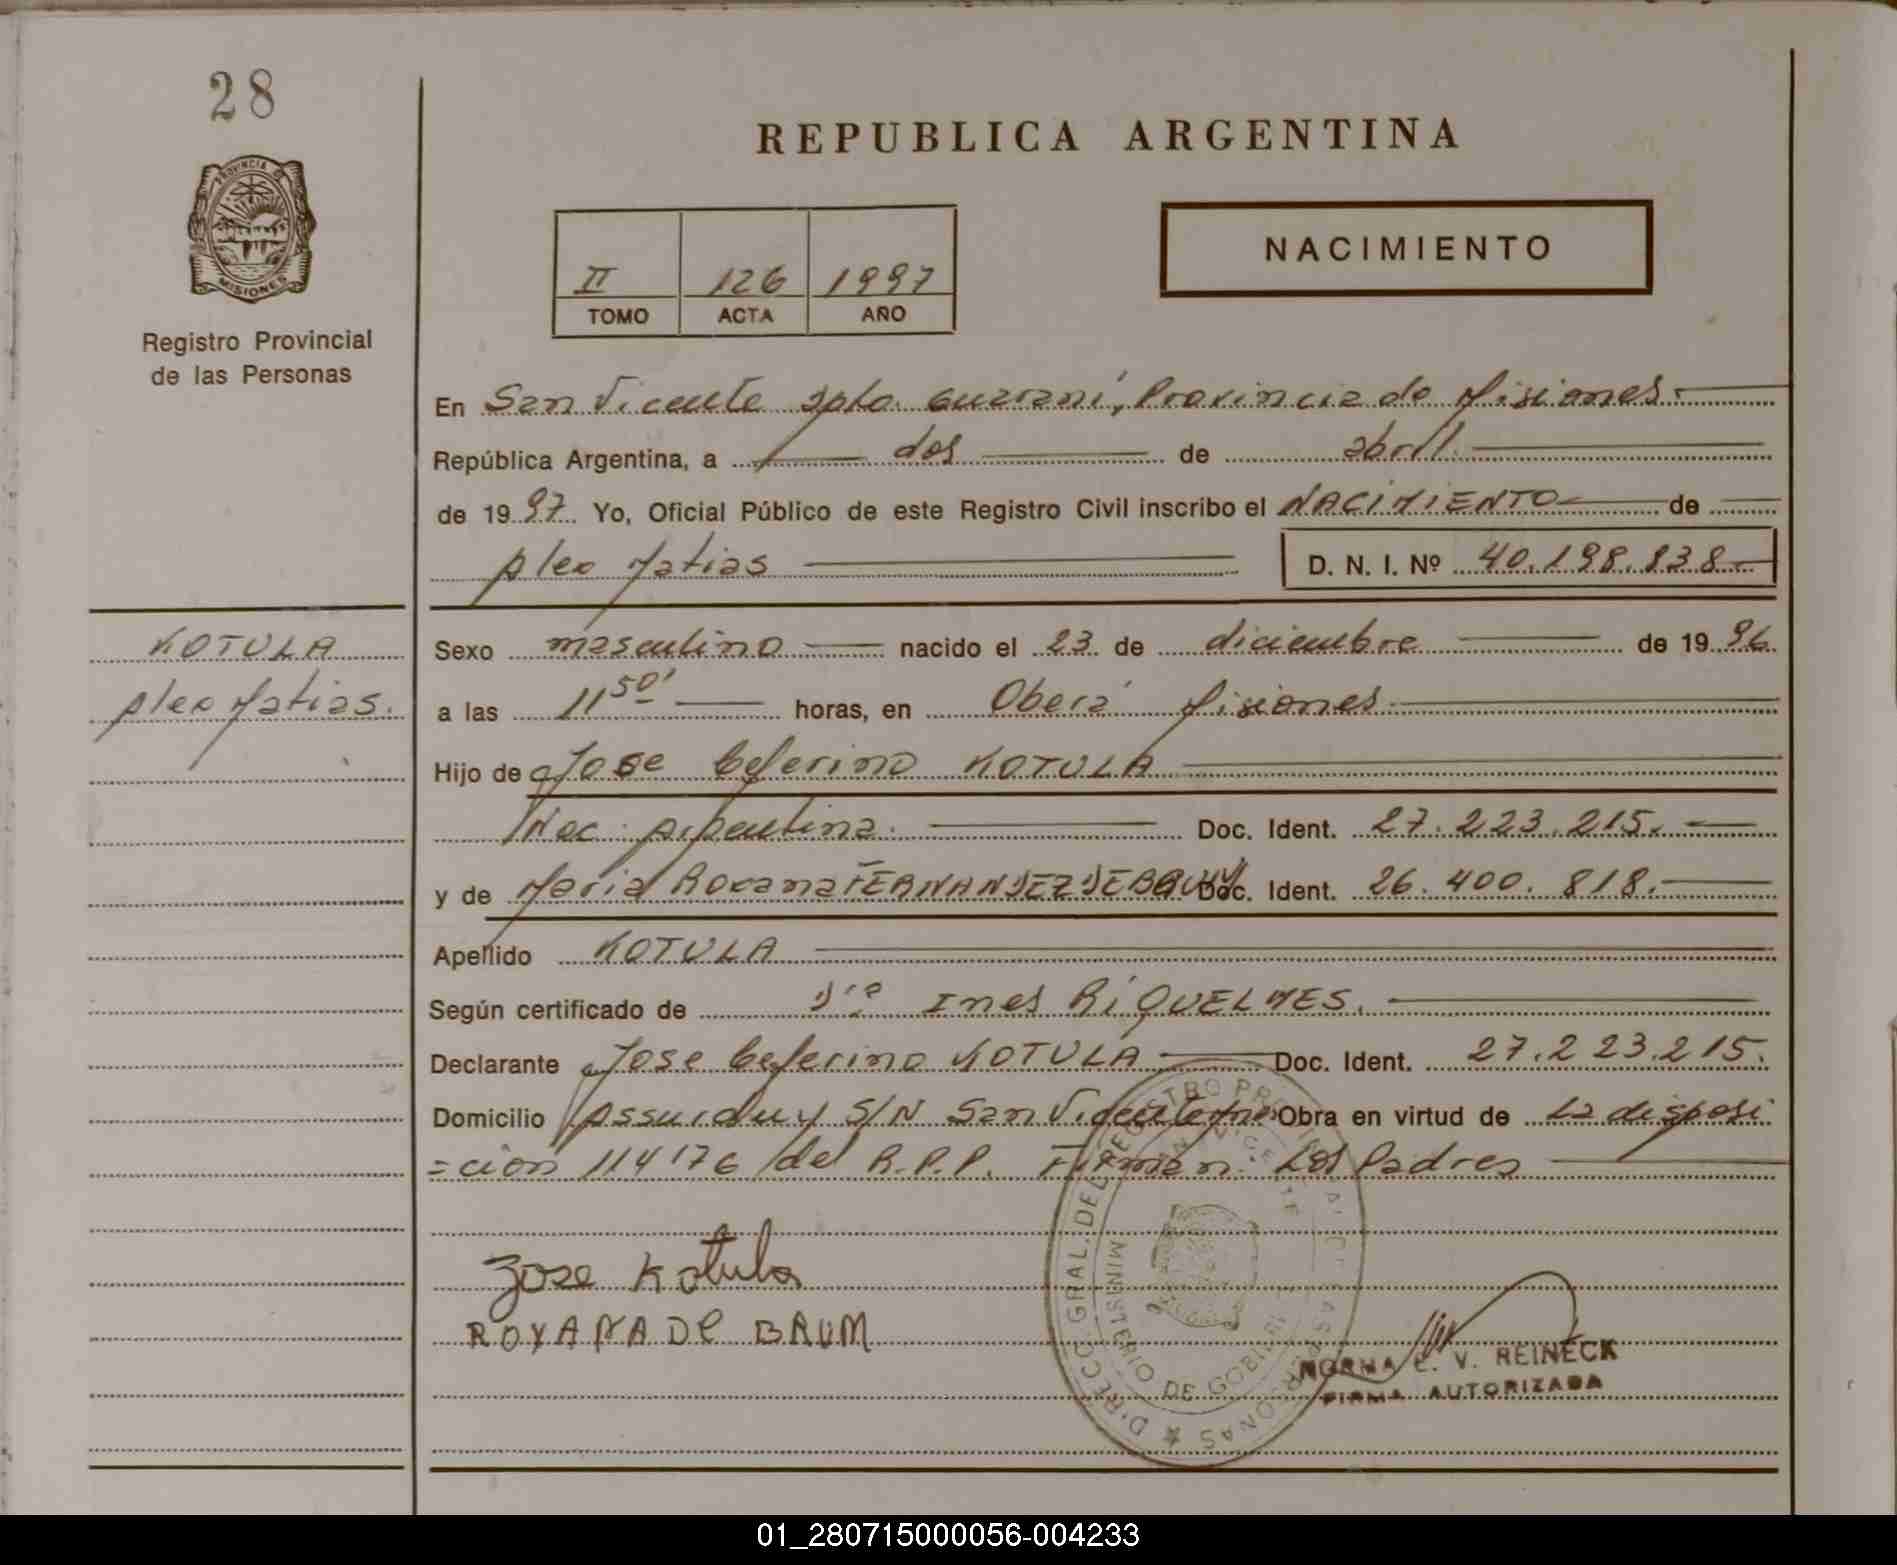 28
PROVINCIA DE
MISIONES
Registro Provincial
de las Personas
REPUBLICA ARGENTINA
II 126 1997
TOMO ACTA AÑO
NACIMIENTO
En San Vicente Dpto. Guaraní, Provincia de Misiones.
República Argentina, a dos de abril.
de 1997. Yo, Oficial Público de este Registro Civil inscribo el NACIMIENTO de
Alex Matias D. N. I. Nº 40.198.838
KOTULA
Alex Matias.
Sexo masculino nacido el 23 de diciembre de 1996.
a las 11 50' horas, en Oberá Misiones
Hijo de Jose Ceferino KOTULA
Nac. Argentina. Doc. Ident. 27.223.215.
y de Maria Roxana FERNANDEZ DE Doc. Ident. 26.400.818.
Apellido KOTULA
Según certificado de Dra Ines RIQUELMES.
Declarante Jose Ceferino KOTULA Doc. Ident. 27.223.215.
Domicilio S/N San Vicente Mnes Obra en virtud de La disposi
=cion 114176 del R.P.P. Firman: Los Padres
Jose Kotula
ROXANA De BAUM
DIRECC. GRAL. DEL REGISTRO PROVINCIAL DE LAS PERSONAS
MINISTERIO DE GOBIERNO
SAN VICENTE
NORMA E. V. REINECK
FIRMA AUTORIZADA
01_280715000056-004233